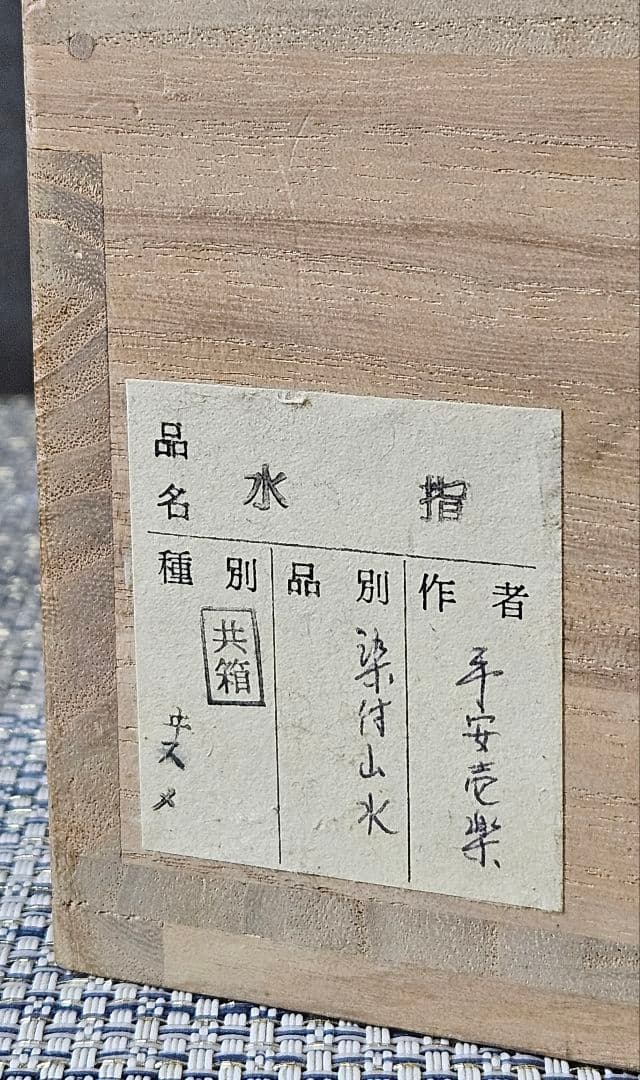 品名 水指
種別 品別 作者
共箱
染付山水
平安壱楽